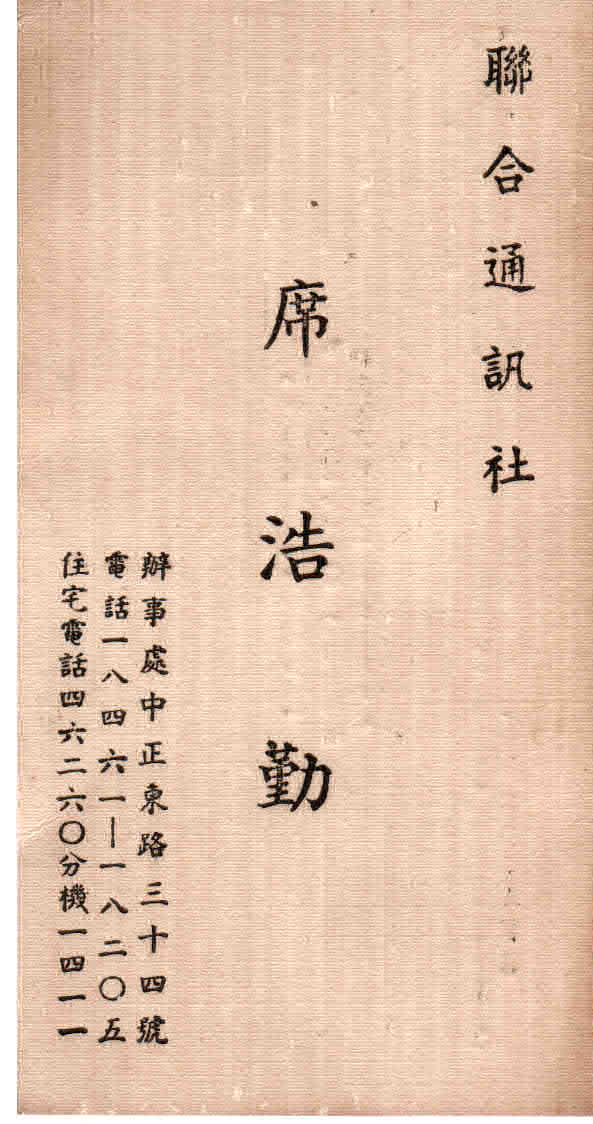 聯合通訊社
席浩勤
辦事處中正東路三十四號
電話一八四六一—一八二〇五
住宅電話四六二六〇分機一四一一